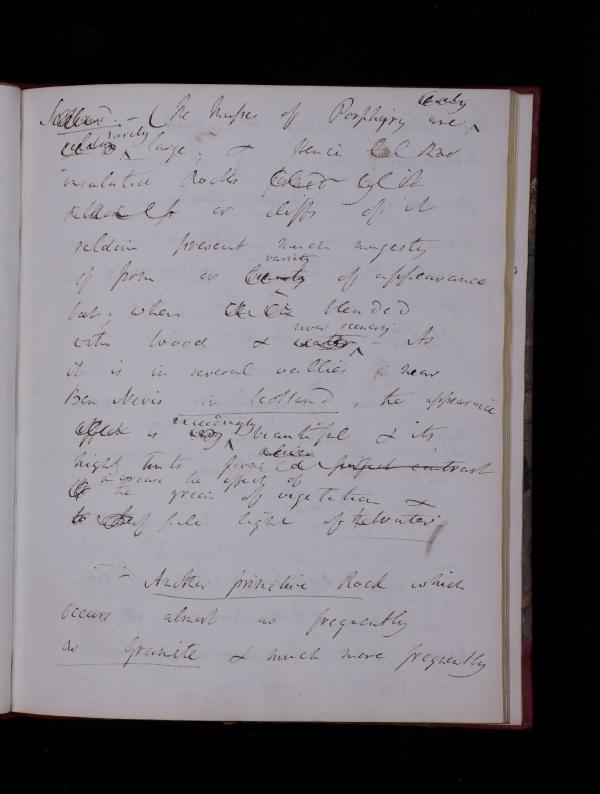 Scotland. – (The Masses of Porphyry are rarely
rarely large; & Hence
insulated Rocks
or cliffs of it
seldom present much majesty
of form or beauty variety of appearance
but, when blended
with wood & water river scenery – As
it is in several vallies near
Ben Nevis in Scotland, the appearance
effect is very exceedingly beautiful & its
bright tints perfect contrast
increase the effect of
the green of vegetation &
pale light of the Water.
– Another primitive Rock which
occurs almost as frequently
as Granite & much more frequently